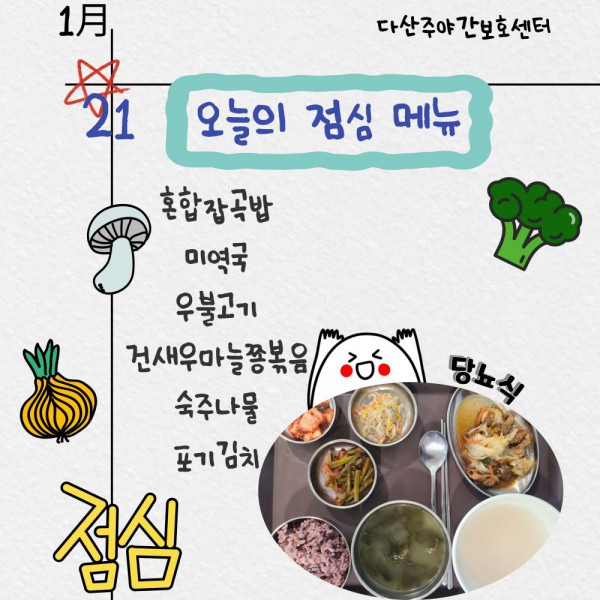 1月
다산주야간보호센터
21
오늘의 점심 메뉴
혼합잡곡밥
미역국
우불고기
건새우마늘쫑볶음
숙주나물
포기김치
당뇨식
점심